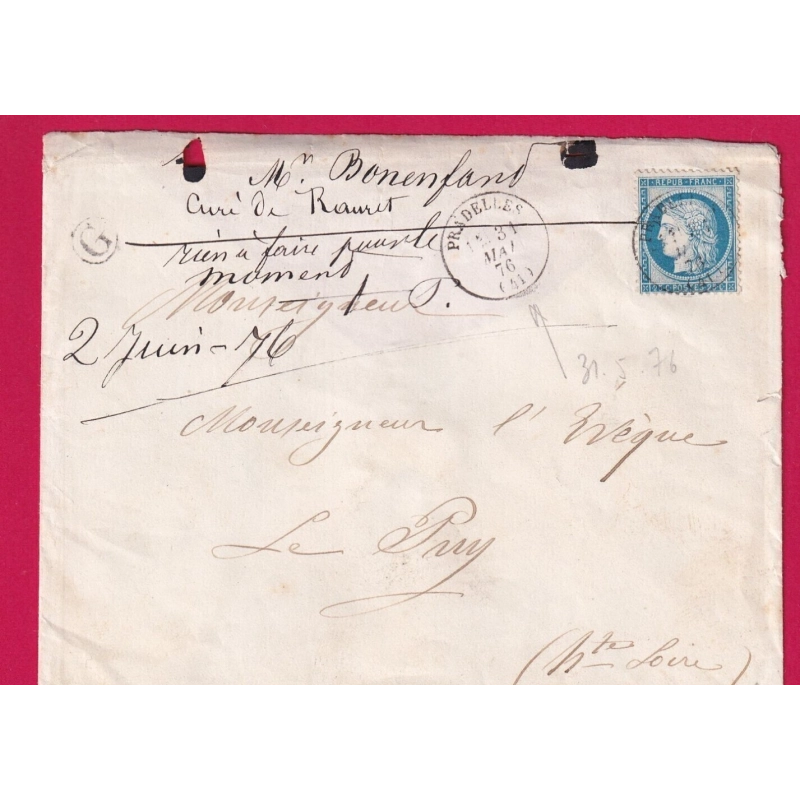 Mr. Bonenfand
Curé de Rauret
rien à faire pour le
moment
Monseigneur P.
2 Juin-76
G
PRADELLES
31
MAI
76
(41)
REPUB. FRANC.
31.5.76
Monseigneur l'Evêque
Le Puy
(hte Loire)